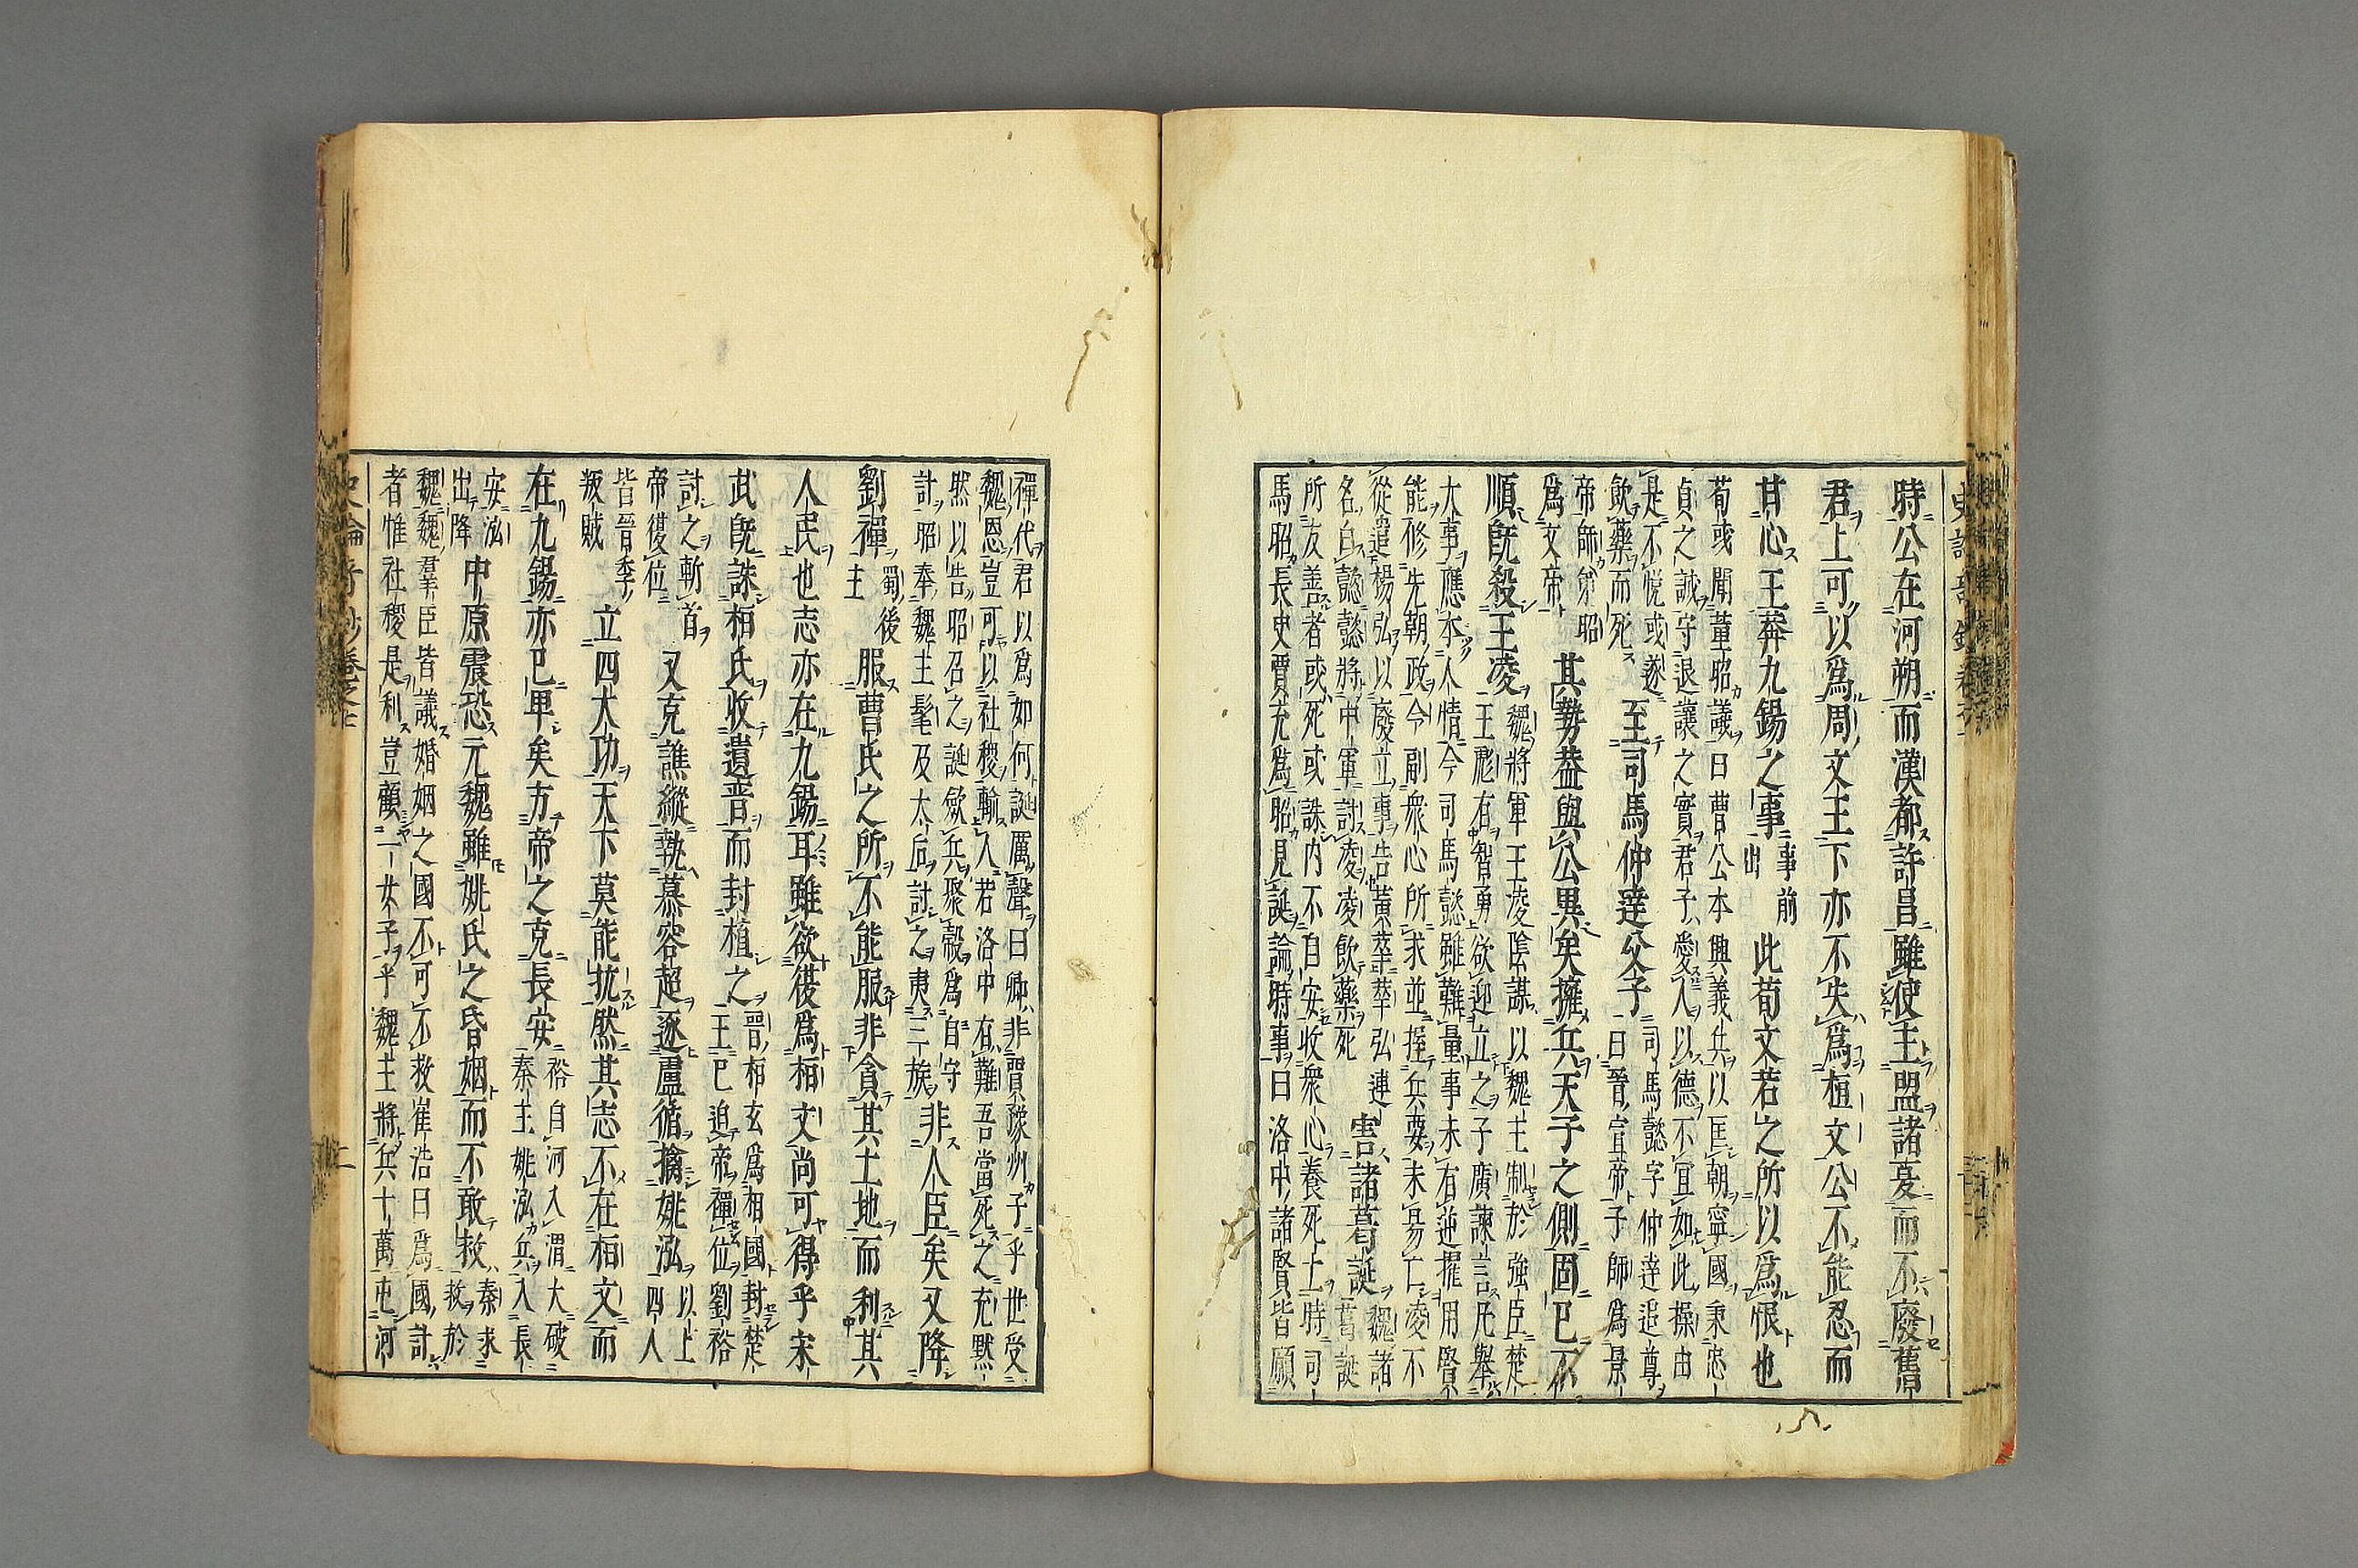 時公在河朔而漢都許昌雖使主盟諸夏而不廢舊
君上可以爲周文王下亦不失爲桓文公不能忍而
甘心王莽九錫之事事前出此荀文若之所以爲恨也
荀彧聞董昭議曰曹公本興義兵以匡朝寧國秉忠
貞之誠守退讓之實君子愛人以德不宜如此操由
是不悅彧遂飲藥而死至司馬仲達父子司馬懿字仲達追尊曰晉宣帝子師爲景
帝師弟昭爲文帝其勢益與公異矣擁兵天子之側固已不
順既殺王凌魏將軍王凌陰謀以魏主制於強臣楚王彪有智勇欲迎立之子廣諫言凡舉
大事應本人情今司馬懿雖難量事未有逆擢用賢
能修先朝政令副衆心所求並握兵要未易亡凌不
從遣楊弘以廢立事告黃華華弘連名白懿懿將中軍討凌凌飲藥死害諸葛誕魏諸葛誕
所友善者或死或誅内不自安收衆心養死士時司
馬昭長史賈充爲昭見誕論時事曰洛中諸賢皆願
禪代君以爲如何誕厲聲曰卿非賈豫州子乎世受
魏恩豈可以社稷輸人若洛中有難吾當死之充默
然以告昭召之誕歛兵聚穀爲自守計昭奉魏主髦及太后討之夷三族非人臣矣又降
劉禪蜀後主服曹氏之所不能服非貪其土地而利其
人民也志亦在九錫耳雖欲復爲桓文尚可得乎宋
武既誅桓氏收遺晉而封植之晉桓玄爲相國封楚王已迫帝禪位劉裕
討之斬首帝復位又克譙縱執慕容超逐盧循擒姚泓以上四人
皆晉季叛賊立四大功天下莫能抗然其志不在桓文而
在九錫亦已卑矣方帝之克長安裕自河入渭大破秦主姚泓兵入長
安泓出降中原震恐元魏雖姚氏之昏姻而不敢救秦求救於
魏魏羣臣皆議婚姻之國不可不救崔浩曰爲國計
者惟社稷是利豈顧一女子乎魏主將兵十萬屯河